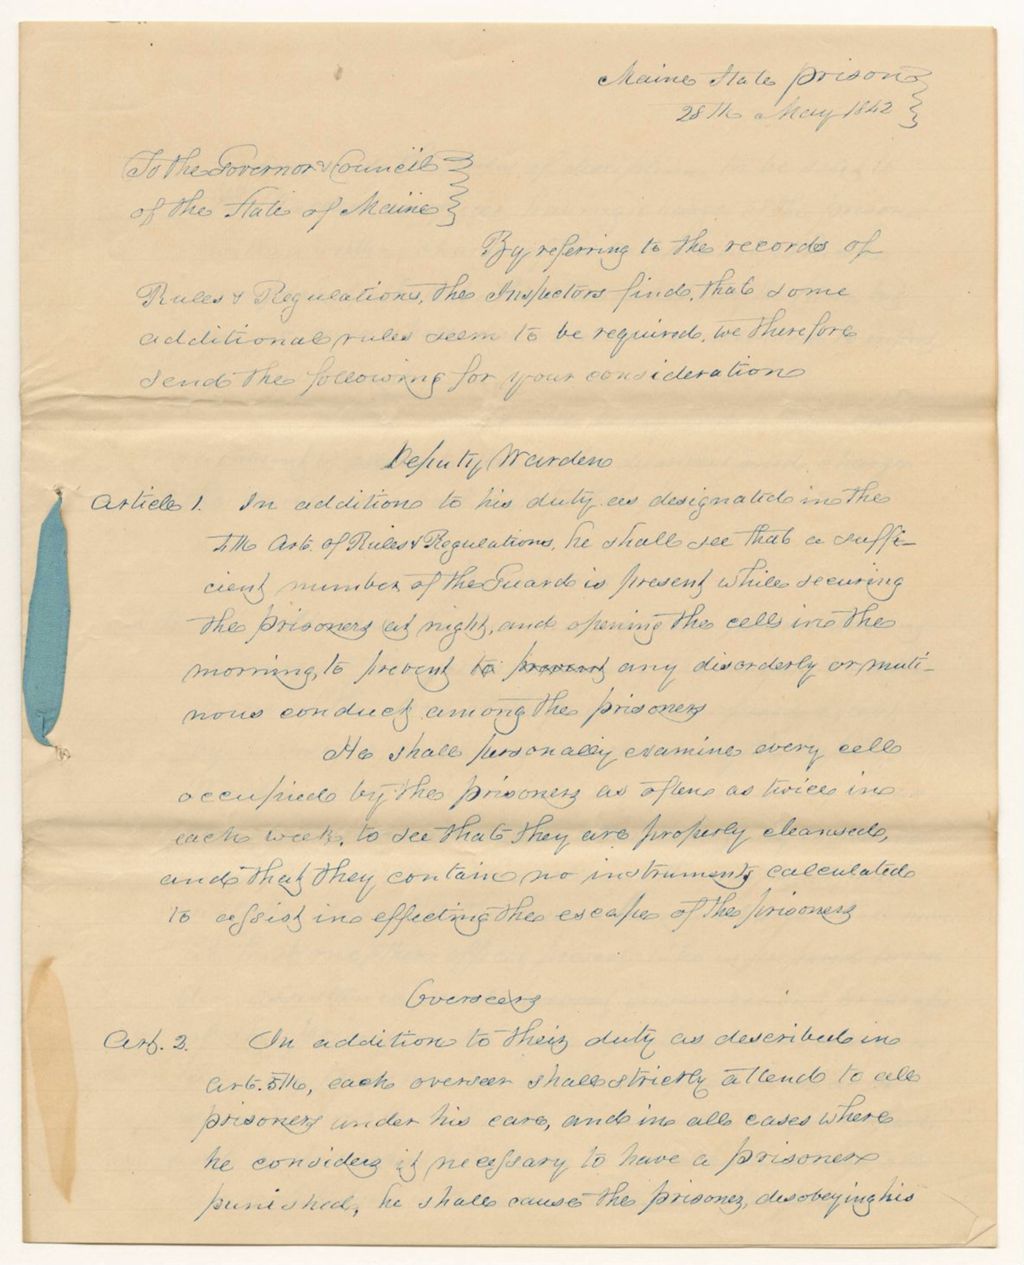 Maine State Prison
28th May 1842
To the Governor & Council
of the State of Maine
By referring to the records of
Rules & Regulations, the Inspectors find, that some
additional rules seem to be required, we therefore
send the following for your consideration
Deputy Warden
Article 1. In addition to his duty as designated in the
4th Art. of Rules & Regulations, he shall see that a suffi-
cient number of the Guard is present while securing
the prisoners at night, and opening the cells in the
morning, to prevent to prevent any disorderly or muti-
nous conduct among the prisoners
He shall personally examine every cell
occupied by the prisoners as often as twice in
each week, to see that they are properly cleansed,
and that they contain no instruments calculated
to assist in effecting the escape of the prisoners
Overseers
Art. 2. In addition to their duty as described in
Art. 5th, each overseer shall strictly attend to all
prisoners under his care, and in all cases where
he considers it necessary to have a prisoner
punished, he shall cause the prisoner, disobeying his